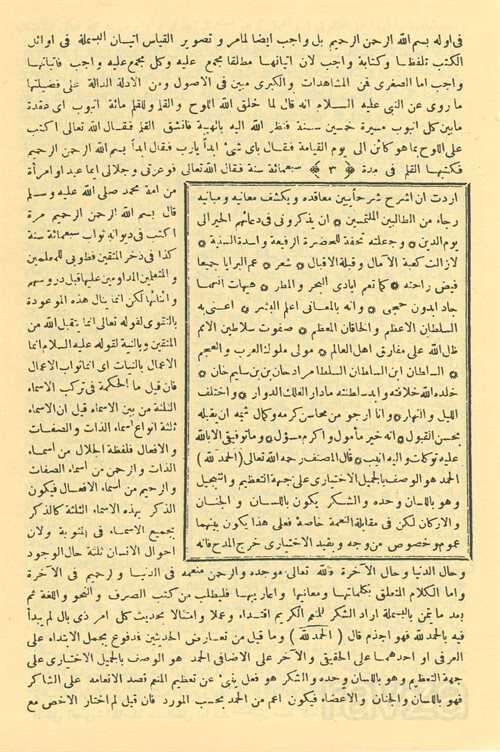 فى اوله بسم الله الرحمن الرحيم بل واجب ايضا لما مر و تصوير القياس اتيان البسملة فى اوائل
الكتب تلفظا وكتابة واجب لان اتيانها مطلقا مجمع عليه وكل مجمع عليه واجب فاتيانها
واجب اما الصغرى فمن المشاهدات والكبرى مبين فى الاصول ومن الادلة الدالة على فضيلتها
ما روى عن النبى عليه السلام انه قال لما خلق الله اللوح والقلم وللقلم مائة انبوب اى عقدة
مابين كل انبوب مسيرة خمسين سنة فنظر الله اليه بالهيبة فانشق القلم فقال الله تعالى اكتب
على اللوح بما هو كائن الى يوم القيامة فقال باى شئ ابدأ يارب فقال ابدأ بسم الله الرحمن الرحيم
فكتبها القلم فى مدة ﴿ ٣ ﴾ سبعمائة سنة فقال الله تعالى فوعزتى وجلالى ايما عبد او امرأة
من امة محمد صلى الله عليه وسلم
قال بسم الله الرحمن الرحيم مرة
اكتب فى ديوانه ثواب سبعمائة سنة
كذا فى ذخر المتقين فطوبى للمعلمين
والمتعلمين المداومين عليها قبل دروسهم
واثنائها لكن انما ينال هذه الموعودة
بالتقوى لقوله تعالى انما يتقبل الله من
المتقين وبالنية لقوله عليه السلام انما
الاعمال بالنيات اى انما ثواب الاعمال
فان قيل ما الحكمة فى تركب الاسماء
الثلثة من بين الاسماء قيل ان الاسماء
ثلثة انواع اسماء الذات والصفات
والافعال فلفظة الجلال من اسماء
الذات والرحمن من اسماء الصفات
والرحيم من اسماء الافعال فيكون
الذكر بهذه الاسماء الثلثة كالذكر
بجميع الاسماء فى المثوبة ولان
احوال الانسان ثلثة حال الوجود
وحال الدنيا وحال الآخرة فالله تعالى موجده والرحمن منعمه فى الدنيا والرحيم فى الآخرة
واما الكلام المتعلق بكلماتها ومعانيها واعرابها فليطلب من كتب الصرف والنحو واللغة ثم
بعد ما تيمن بالبسملة اراد الشكر للمنعم الكريم اقتداء وعملا وامتثالا بحديث كل امر ذى بال لم يبدأ
فيه بالحمد لله فهو اجذم قال ( الحمد لله ) وما قيل من تعارض الحديثين فمدفوع بحمل الابتداء على
العرفى او احدهما على الحقيق والآخر على الاضافى الحمد هو الوصف بالجميل الاختيارى على
جهة التعظيم وهو باللسان وحده والشكر هو فعل ينبئ عن تعظيم المنعم قصد الانعامه على الشاكر
فهو باللسان والجنان والاعضاء فيكون اعم من الحمد بحسب المورد فان قيل لم اختار الاخص مع
اردت ان اشرح شرحا يبين معاقده ويكشف معانيه ومبانيه
رجاء من الطالبين الملتمسين ۞ ان يذكرونى فى دعائهم الخير الى
يوم الدين ۞ وجعلته تحفة للحضرة الرفيعة والسدة السنية ۞
لازالت كعبة الآمال وقبلة الاقبال ۞ شعر ۞ عم البرايا جميعا
فيض راحته ۞ كما تعم ايادى البحر والمطر ۞ هيهات انهما
جادا بدون حجى ۞ وانه بالمعانى اعلم البشر ۞ اعنى به
السلطان الاعظم والخاقان المعظم ۞ صفوت سلاطين الامم
ظل الله على مفارق اهل العالم ۞ مولى ملوك العرب والعجم
۞ السلطان ابن السلطان السلطان مراد خان بن سليم خان ۞
خلد الله خلافته وابد سلطنته مادار الفلك الدوار ۞ واختلف
الليل والنهار ۞ وانا ارجو من محاسن كرمه وكمال شيمه ان يقبله
بحسن القبول ۞ انه خير مأمول واكرم مسؤل ۞ وما توفيقى الا بالله
عليه توكلت واليه انيب ۞ قال المصنف رحمه الله تعالى (الحمد لله )
الحمد هو الوصف بالجميل الاختيارى على جهة التعظيم والتبجيل
وهو باللسان وحده والشكر يكون باللسان و الجنان
والاركان لكن فى مقابلة النعمة خاصة فعلى هذا يكون بينهما
عموم وخصوص من وجه و بقيد الاختيارى خرج المدح فانه